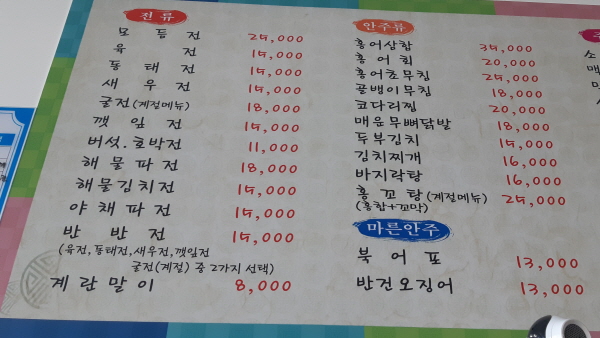 전 류
모 듬 전 25,000
육 전 15,000
동 태 전 15,000
새 우 전 15,000
굴전(계절메뉴) 18,000
깻 잎 전 15,000
버섯.호박전 11,000
해 물 파 전 18,000
해물김치전 15,000
야 채 파 전 15,000
반 반 전 15,000
(육전,동태전,새우전,깻잎전
굴전(계절) 중 2가지 선택)
계 란 말 이 8,000
안주류
홍어삼합 35,000
홍 어 회 20,000
홍어초무침 25,000
골뱅이무침 18,000
코다리찜 20,000
매운무뼈닭발 18,000
두부김치 15,000
김치찌개 16,000
바지락탕 16,000
홍 꼬 탕 (계절메뉴) 25,000
(홍합+꼬막)
마른안주
북 어 포 13,000
반건오징어 13,000